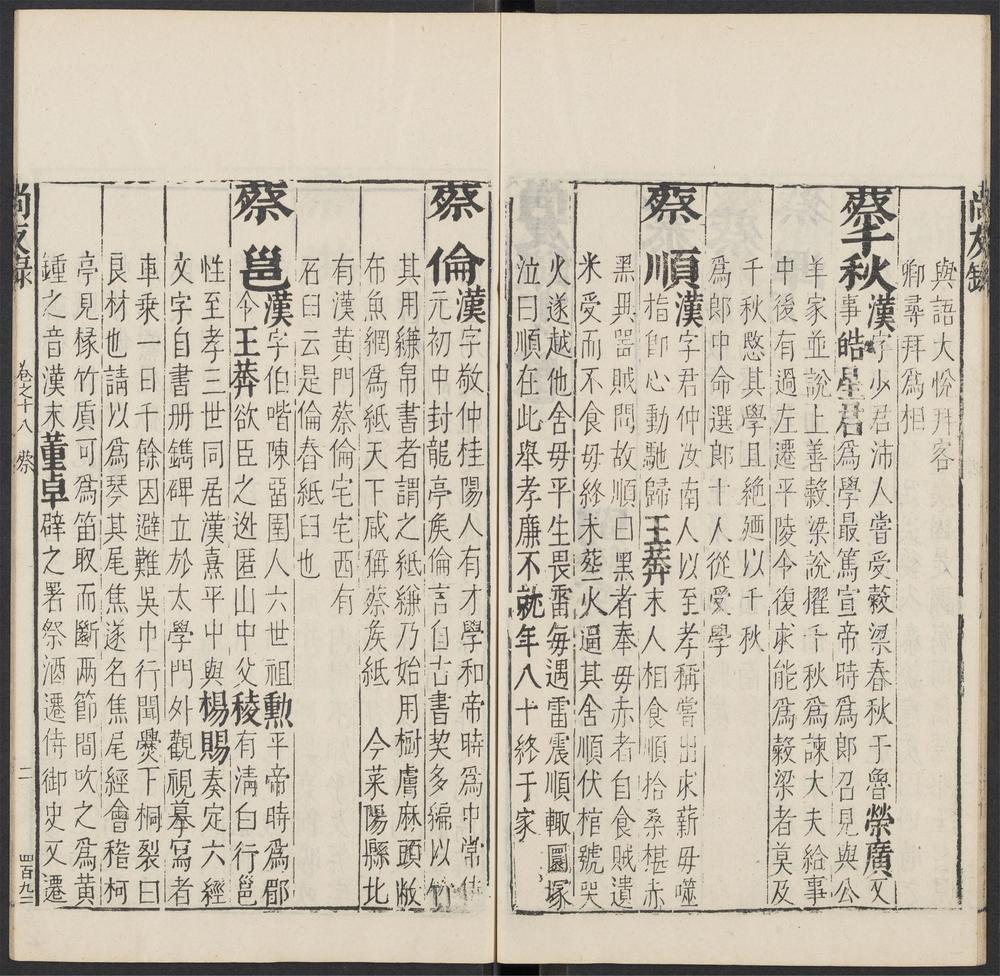 尚友錄
與語大悅拜客
卿尋拜爲相
蔡千秋漢字少君沛人嘗受穀梁春秋于魯榮廣又
事皓星君爲學最篤宣帝時爲郎召見與公
羊家並說上善穀梁說擢千秋爲諫大夫給事
中後有過左遷平陵令復求能爲穀梁者莫及
千秋愍其學且絕廼以千秋
爲郎中命選郎十人從受學
蔡順漢字君仲汝南人以至孝稱嘗出求薪毋噬
指卽心動馳歸王莽末人相食順拾桑椹赤
黑異器賊問故順曰黑者奉毋赤者自食賊遺
米受而不食毋終未葬火逼其舍順伏棺號哭
火遂越他舍毋平生畏雷每遇雷震順輙圜塚
泣曰順在此舉孝廉不就年八十終于家
蔡倫漢字敬仲桂陽人有才學和帝時爲中常侍
元初中封龍亭矦倫言自古書契多編以竹
其用縑帛書者謂之紙縑乃始用樹膚麻頭敝
布魚網爲紙天下咸稱蔡矦紙 今菜陽縣北
有漢黄門蔡倫宅宅西有
石臼云是倫舂紙臼也
蔡邕漢字伯喈陳畱圉人六世祖勳平帝時爲郿
令王莽欲臣之迯匿山中父稜有淸白行邕
性至孝三世同居漢熹平中與楊賜奏定六經
文字自書册鐫碑立於太學門外觀視摹寫者
車乗一日千餘因避難吳巾行聞㸑下桐裂曰
良材也請以爲琴其尾焦遂名焦尾經會稽柯
亭見椽竹眞可爲笛取而斷两節間吹之爲黄
鍾之音漢末董卓辟之署祭酒遷侍御史又遷
尚友录 卷之十八 蔡 二 四百九三